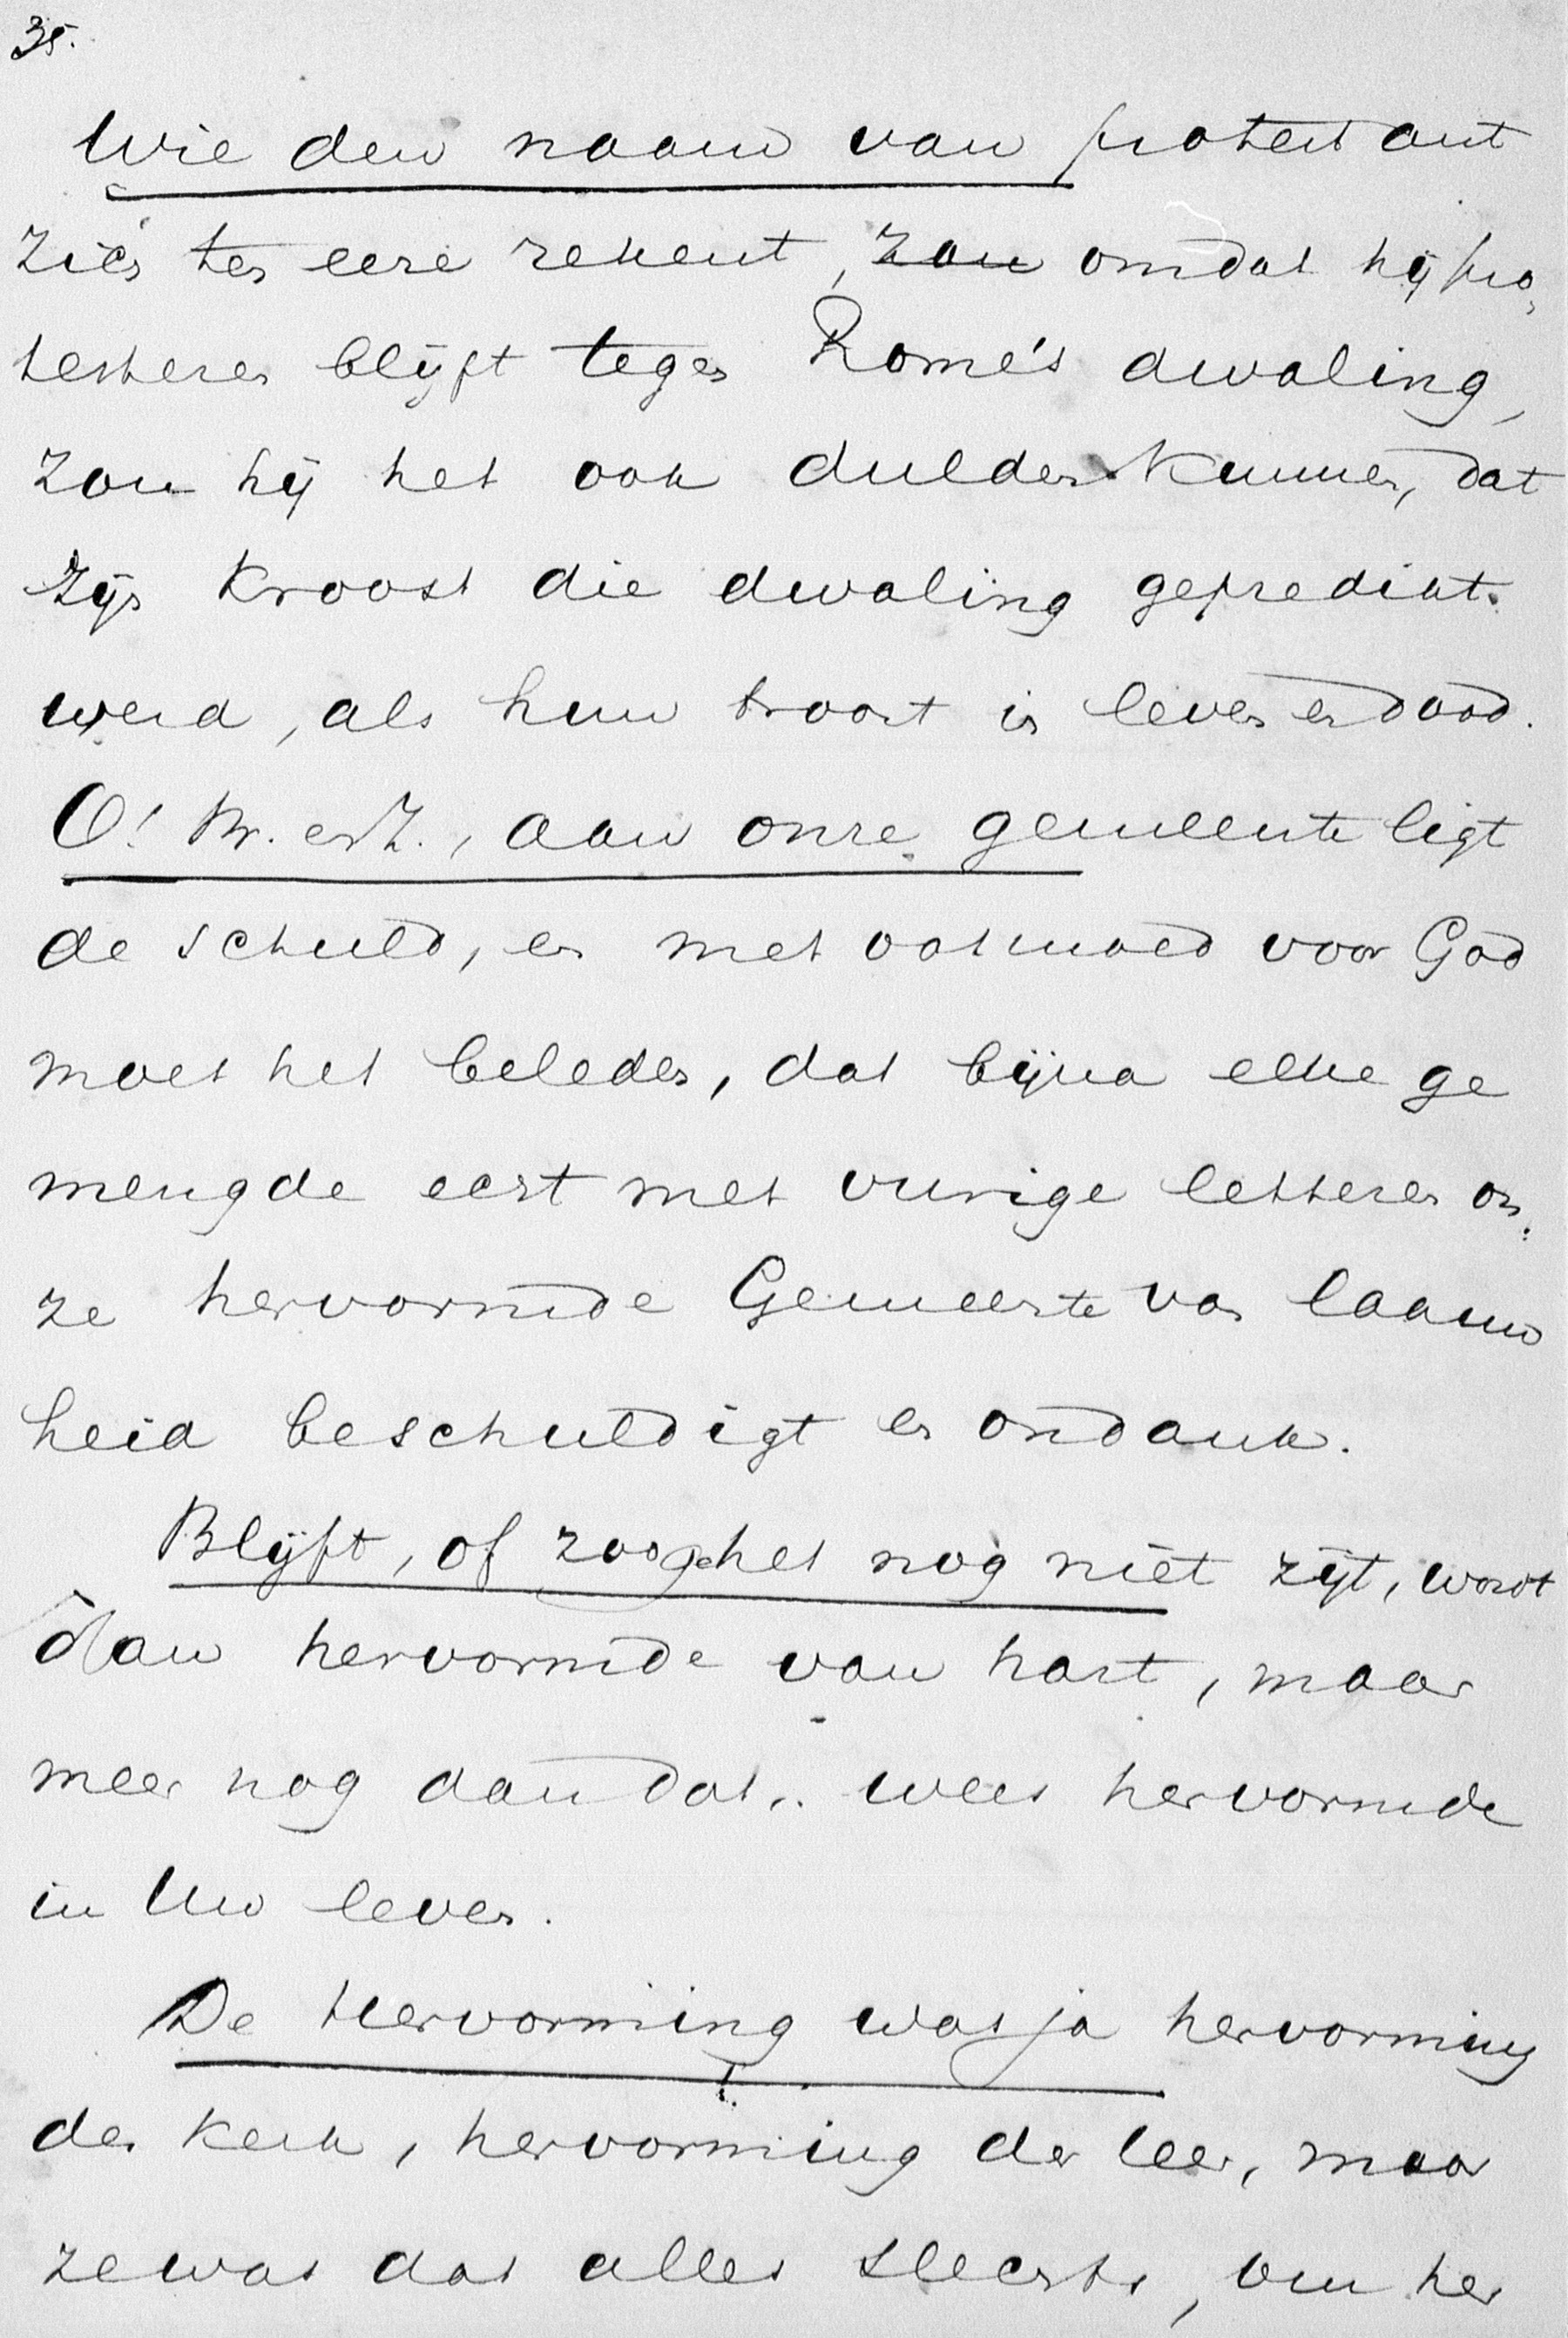 35.
Wie den naam van protestant
zich ter eere rekent, zou omdat hij pro-
testeren blijft tegen Rome's dwaling,
zou hij het ook dulden kunnen, dat
zijn kroost die dwaling gepredikt.
werd, als hun troost in leven en dood.
O! Br. en Z., aan onze gemeente ligt
de schuld, en met ootmoed voor God
moet het beleden, dat bijna elke ge
mengde echt met vurige letteren on:
ze hervormde Gemeente van laauw
heid beschuldigt en ondank.
Blijft, of zoo ge het nog niet zijt, wordt
dan hervormde van hart, maar
meer nog dan dat, wees hervormde
in Uw leven.
De Hervorming was ja hervorming
der kerk, hervorming der leer, maar
ze was dat alles slechts, om her